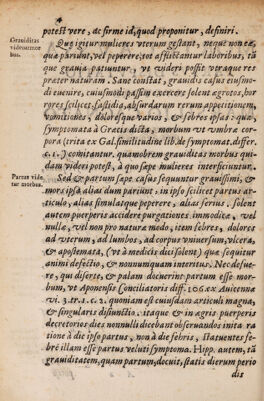 potest vere, ac firme id, quod proponitur, definiri.
Grauiditas
videatur mor
bus.
Qui igitur mulieres vterum gestant, neque non eæ,
quæ pariunt, vel peperere, tot afflictantur laboribus, tã
quæ grauia patiuntur, vt videri possit vtraque res
præter naturam. Sane constat, grauidis casus eiusmo-
di euenire, cuiusmodi passim exercere solent ægrotos, hor
rores scilicet, fastidia, absurdarum rerum appetitionem,
vomitiones, doloresque varios, & febres ipsas: quæ
symptomata à Græcis dicta, morbum vt vmbræ cor-
pora (trita ex Gal. similitudine lib. de symptomat. differ.
c. 1.) comitantur. quamobrem grauiditas morbus qui-
dam videri potest, à quo sæpe mulieres interficiuntur.
Partus vide
tur morbus.
Sed & partum sæpe casus sequuntur grauissimi, &
mors ipsa alias dum pariunt, in ipso scilicet partus ar-
ticulo, alias simulatque peperere, alias serius. Solent
autem puerperis accedere purgationes immodicæ, vel
nullæ, vel non pro natura modo, item febres, dolores
ad vterum, ad lumbos, ad corpus vniuersum, vlcera,
& apostemata, (vt à medicis dici solent) quæ sequitur
animi defectio, & nonnunquam interitus. Nec desue-
re, qui diserte, & palam docuerint partum esse mor-
bum, vt Aponensis Conciliatoris diff. 106. ex Auicenna
vi. 3. tr. 1. c. 2. quoniam est cuiusdam articuli magna,
& singularis disiunctio. itaque & in ægris puerperis
decretorios dies nonnulli dicebant obseruandos inita ra
tione à die ipso partus, non à die febris, statuentes fe-
bre illam esse partus veluti symptoma. Hipp. autem, tã
grauiditatem, quam partum, docuit, statis dierum perio
dis